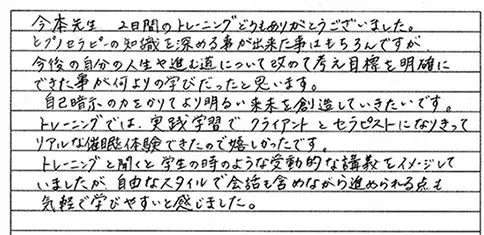 今本先生 2日間のトレーニングどうもありがとうございました。
ヒプノセラピーの知識を深める事が出来た事はもちろんですが、
今後の自分の人生や進む道について改めて考え目標を明確に
できた事が何よりの学びだったと思います。
自己暗示の力をかりてより明るい未来を創造していきたいです。
トレーニングでは、実践学習でクライアントとセラピストになりきって
リアルな催眠体験できたので嬉しかったです。
トレーニングと聞くと学生の時のような受動的な講義をイメージして
いましたが自由なスタイルで会話も含めながら進められる点も
気軽で学びやすいと感じました。